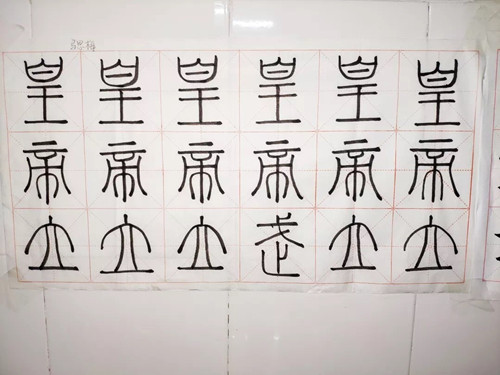 皇皇皇皇皇皇
帝帝帝帝帝帝
立立立武立立